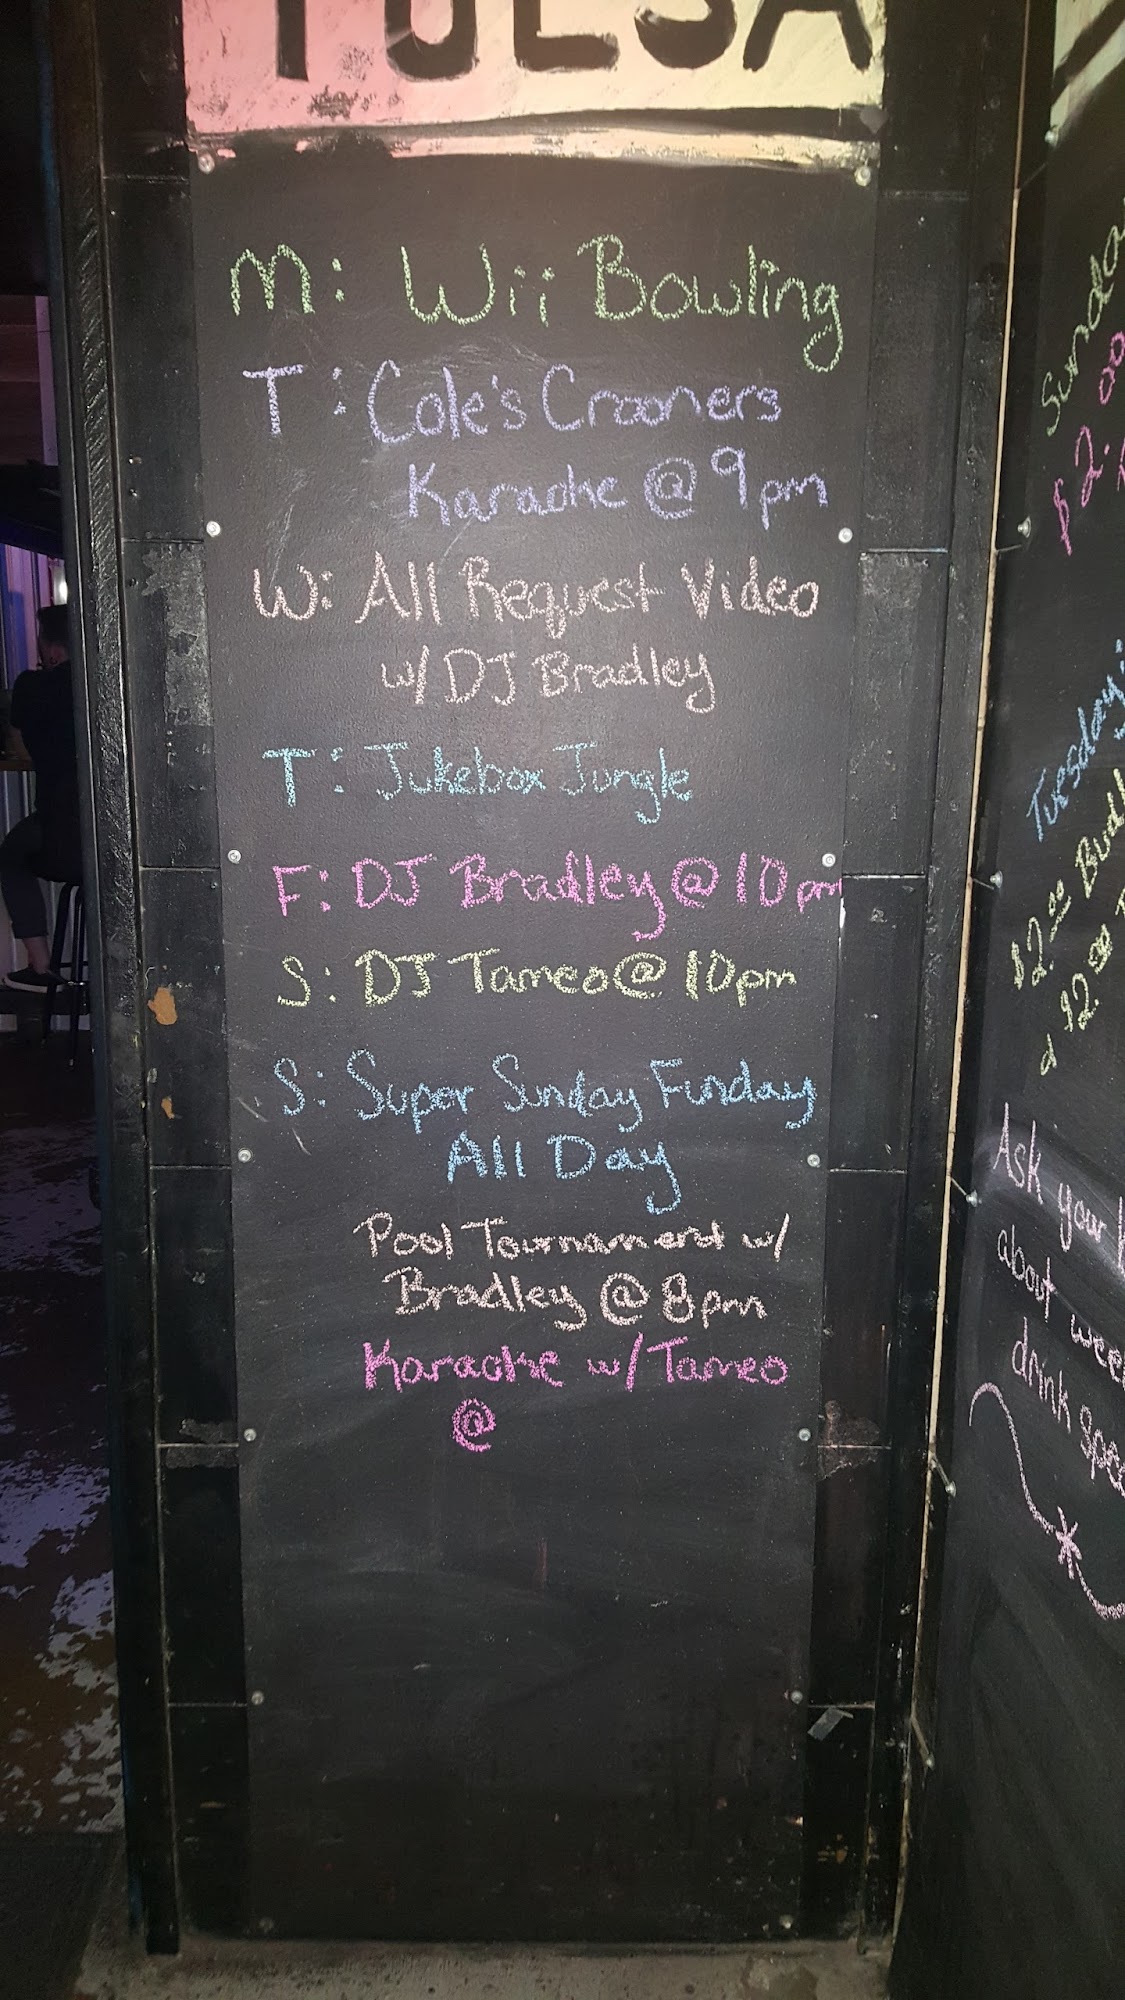 TULSA
M: Wii Bowling
T: Cole's Crooners
Karaoke @ 9pm
W: All Request Video
w/ DJ Bradley
T: Jukebox Jungle
F: DJ Bradley @ 10pm
S: DJ Tameo @ 10pm
S: Super Sunday Funday
All Day
Pool Tournament w/
Bradley @ 8pm
Karaoke w/ Tameo
@
$2.
Tuesday:
$2.00
$2.50
Ask your
about
drink